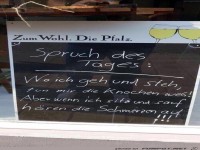 Zum Wohl. Die Pfalz.
Spruch des
Tages:
Wo ich geh und steh,
tun mir die Knochen weh!
Aber wenn ich sitz und sauf
hören die Schmerzen auf
!!!